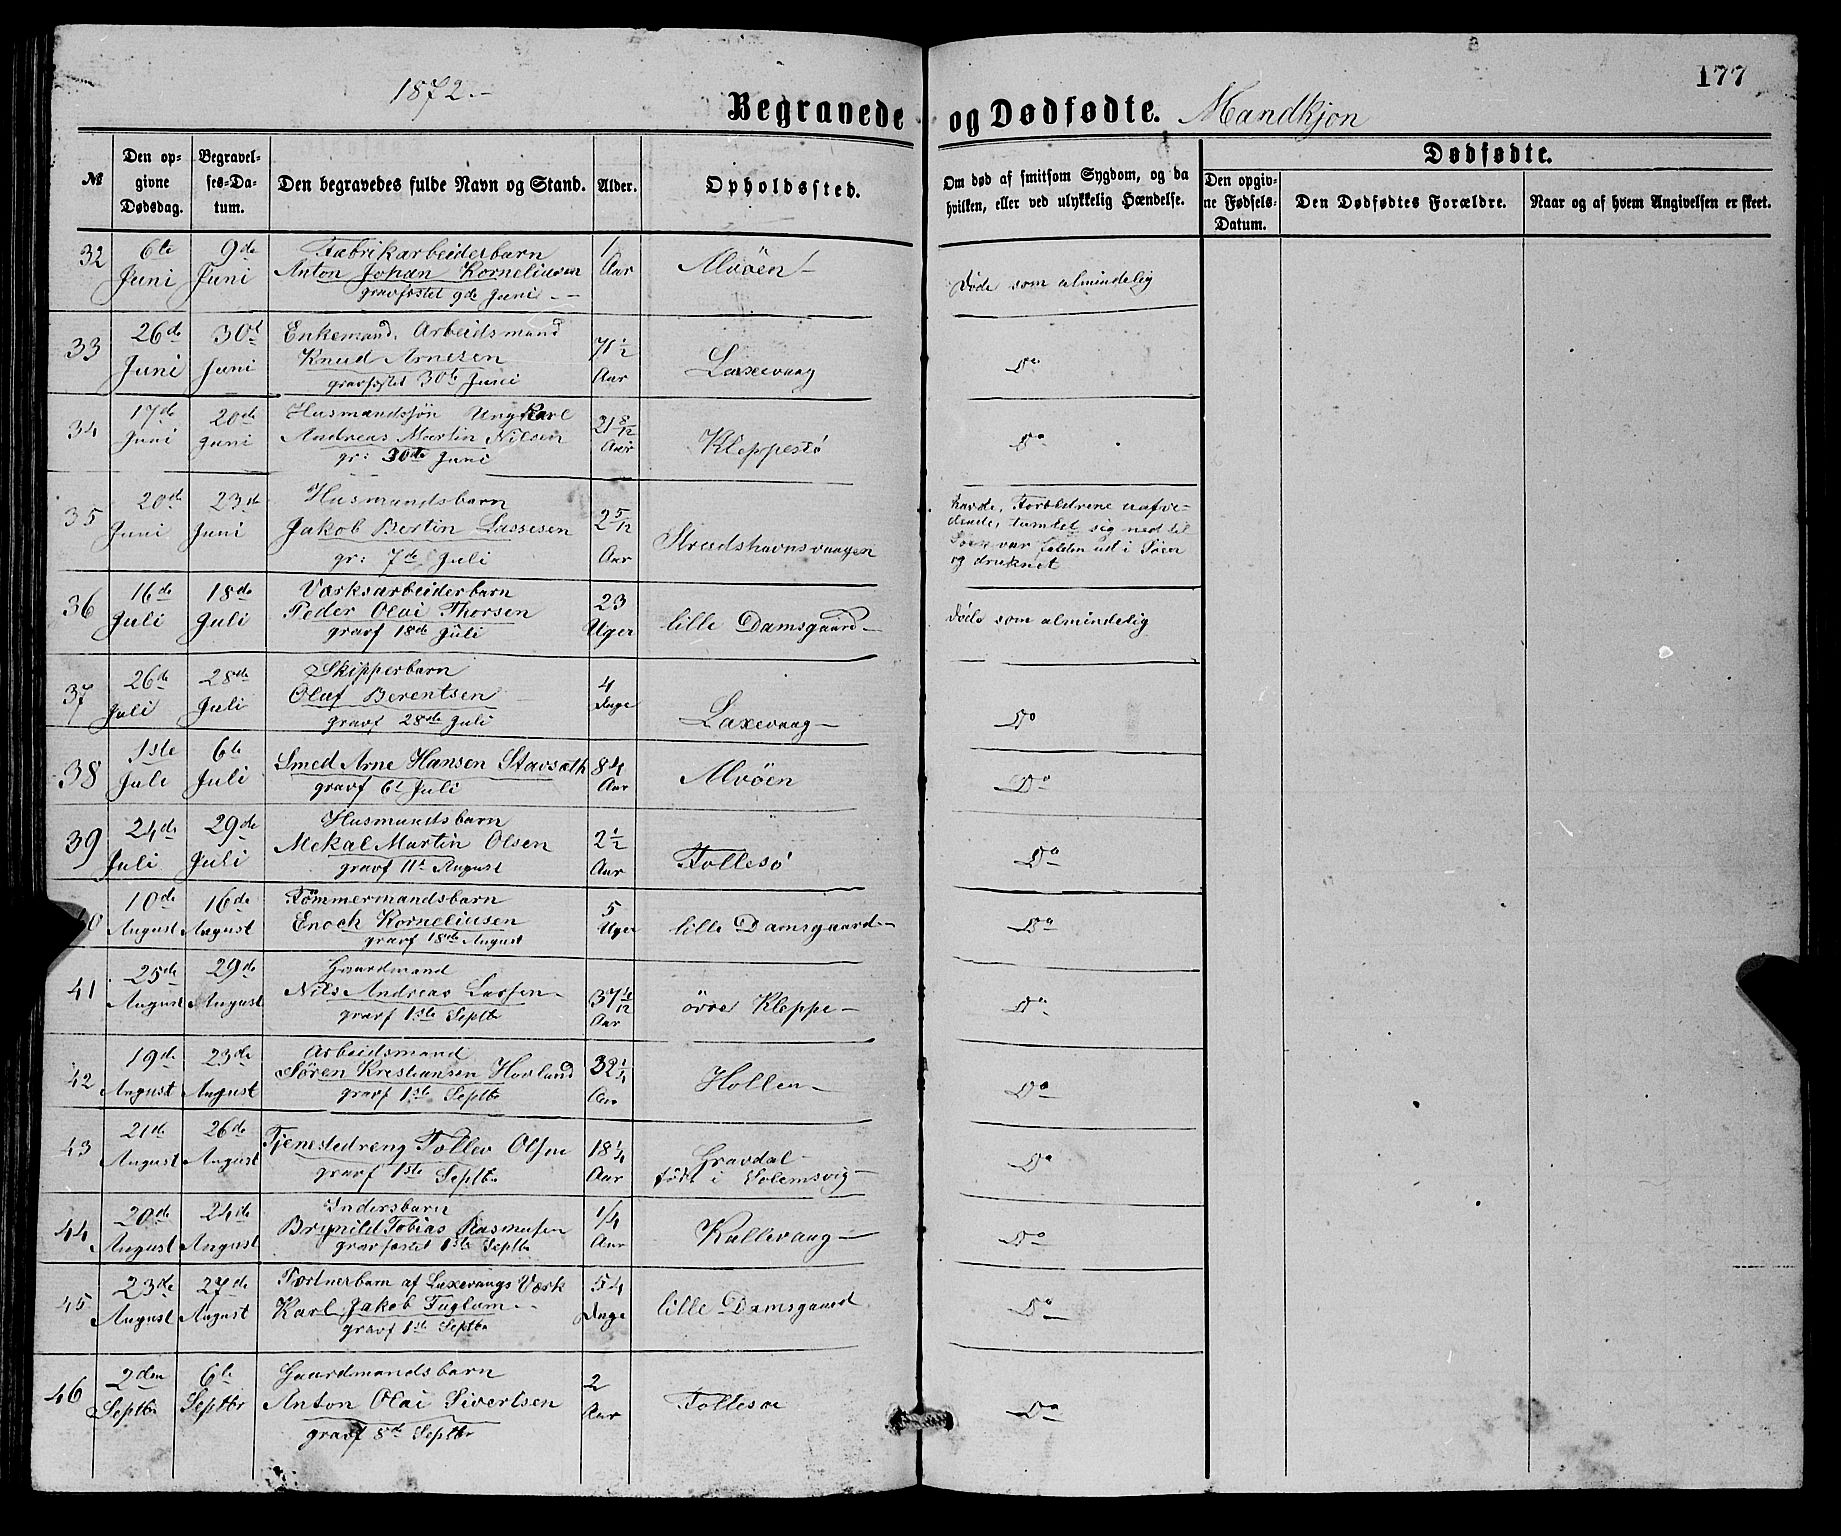 177
1872.-
Begravede og Dødfødte. Mandkjøn
№
Den opgivne Dødsdag.
Begravelses-Datum.
Den begravedes fulde Navn og Stand.
Alder.
Opholdssted.
Om død af smitsom Sygdom, og da hvilken, eller ved ulykkelig Hændelse.
Dødfødte.
Den opgivne Fødsels-Datum.
Den Dødfødtes Forældre.
Naar og af hvem Angivelsen er skeet.
32 6te Juni 9de Juni Fabrikarbeiderbarn 1 Aar Alvøen-
Anton Johan Korneliusen Døde som almindelig
gravfæstet 9de Juni
33 26de Juni 30te Juni Enkemand, Arbeidsmand 71 1/2 Aar Laxevaag Do
Knud Arnesen
gravfæstet 30te Juni
34 17de Juni 20de Juni Husmandssøn Ungkarl 21 8/12 Aar Kleppestø Do
Andreas Martin Nilsen
gr: 30te Juni
35 20de Juni 23de Juni Husmandsbarn 2 5/12 Aar Strudshavnsvaagen
Jakob Bertin Lassesen
gr: 7de Juli
havde, Forældrene uafvidende, tumlet sig ned til
Søen var falden ud i Søen
og druknet
36 16de Juli 18de Juli Værksarbeiderbarn 23 Uger lille Damsgaard- Døde som almindelig
Peder Olai Thorsen
gravf 18de Juli
37 26de Juli 28de Juli Skipperbarn 4 Dage Laxevaag- Do
Oluf Berentsen
gravf 28de Juli
38 1ste Juli 6te Juli Smed Arne Hansen Stavsæth 84 Aar Alvøen Do
gravf 6te Juli
39 24de Juli 29de Juli Husmandsbarn 2 1/2 Aar Follesø Do
Mekal Martin Olsen
gravf 11te August
0 10de August 16de August Tømmermandsbarn 5 Uger lille Damsgaard- Do
Enoch Korneliusen
gravf 18de August
41 25de August 29de August Gaardmand 37 /12 Aar øvre Kleppe- Do
Nils Andreas Larsen-
gravf 1ste Septbr
42 19de August 23de August Arbeidsmand 32 1/4 Aar Hollen- Do
Søren Kristiansen Hovland
gravf 1ste Septbr
43 21de August 26de August Tjenestedreng Tollev Olsen 18 1/4 Aar Gravdal- Do
gravf 1ste Septbr født i Solemsvig-
44 20de August 24de August Indersbarn 1/4 Aar Kullevaag- Do
Brynild Tobias Rasmusen
gravfæstet 1ste Septbr
45 23de August 27de August Portnerbarn af Laxevaags Værk 54 Dage lille Damsgaard Do
Karl Jakob Fuglum
gravf 1ste Septbr
46 2den Septbr 6te Septbr Gaardmandsbarn 2 Aar Follesøe Do
Anton Olai Sivertsen
gravf 8de Septbr